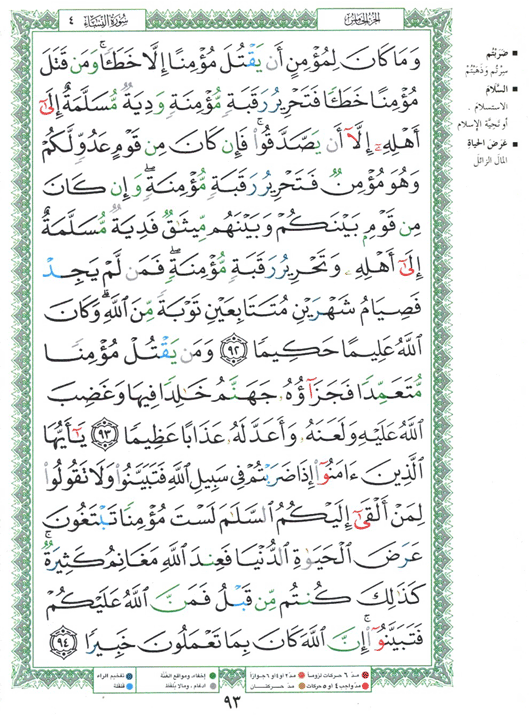 الجزء الخامس
سورة النساء ٤
وَمَا كَانَ لِمُؤْمِنٍ أَن يَقْتُلَ مُؤْمِنًا إِلَّا خَطَـًٔا ۚ وَمَن قَتَلَ
مُؤْمِنًا خَطَـًٔا فَتَحْرِيرُ رَقَبَةٍ مُّؤْمِنَةٍ وَدِيَةٌ مُّسَلَّمَةٌ إِلَىٰٓ
أَهْلِهِۦٓ إِلَّآ أَن يَصَّدَّقُوا۟ ۚ فَإِن كَانَ مِن قَوْمٍ عَدُوٍّ لَّكُمْ
وَهُوَ مُؤْمِنٌ فَتَحْرِيرُ رَقَبَةٍ مُّؤْمِنَةٍ ۖ وَإِن كَانَ
مِن قَوْمٍۭ بَيْنَكُمْ وَبَيْنَهُم مِّيثَـٰقٌ فَدِيَةٌ مُّسَلَّمَةٌ
إِلَىٰٓ أَهْلِهِۦ وَتَحْرِيرُ رَقَبَةٍ مُّؤْمِنَةٍ ۖ فَمَن لَّمْ يَجِدْ
فَصِيَامُ شَهْرَيْنِ مُتَتَابِعَيْنِ تَوْبَةً مِّنَ ٱللَّهِ ۗ وَكَانَ
ٱللَّهُ عَلِيمًا حَكِيمًا ٩٢ وَمَن يَقْتُلْ مُؤْمِنًا
مُّتَعَمِّدًا فَجَزَآؤُهُۥ جَهَنَّمُ خَـٰلِدًا فِيهَا وَغَضِبَ
ٱللَّهُ عَلَيْهِ وَلَعَنَهُۥ وَأَعَدَّ لَهُۥ عَذَابًا عَظِيمًا ٩٣ يَـٰٓأَيُّهَا
ٱلَّذِينَ ءَامَنُوٓا۟ إِذَا ضَرَبْتُمْ فِى سَبِيلِ ٱللَّهِ فَتَبَيَّنُوا۟ وَلَا تَقُولُوا۟
لِمَنْ أَلْقَىٰٓ إِلَيْكُمُ ٱلسَّلَـٰمَ لَسْتَ مُؤْمِنًا تَبْتَغُونَ
عَرَضَ ٱلْحَيَوٰةِ ٱلدُّنْيَا فَعِندَ ٱللَّهِ مَغَانِمُ كَثِيرَةٌ ۚ
كَذَٰلِكَ كُنتُم مِّن قَبْلُ فَمَنَّ ٱللَّهُ عَلَيْكُمْ
فَتَبَيَّنُوٓا۟ ۚ إِنَّ ٱللَّهَ كَانَ بِمَا تَعْمَلُونَ خَبِيرًا ٩٤
■ ضَرَبْتُم
سِرْتُم وَذَهَبْتُم
■ السَّلَام
الاستسلام .
أو تحيّة الإسلام
■ عَرَضَ الحياة
المال الزائل
مدّ ٦ حركات لزوماً ● مدّ ٢ أو ٤ أو ٦ جوازاً
مدّ واجب ٤ أو ٥ حركات ● مدّ حركتان
إخفاء، ومواقع الغُنَّة
ادغام، وما لا يُلفَظ
تفخيم الراء
قلقلة
٩٣